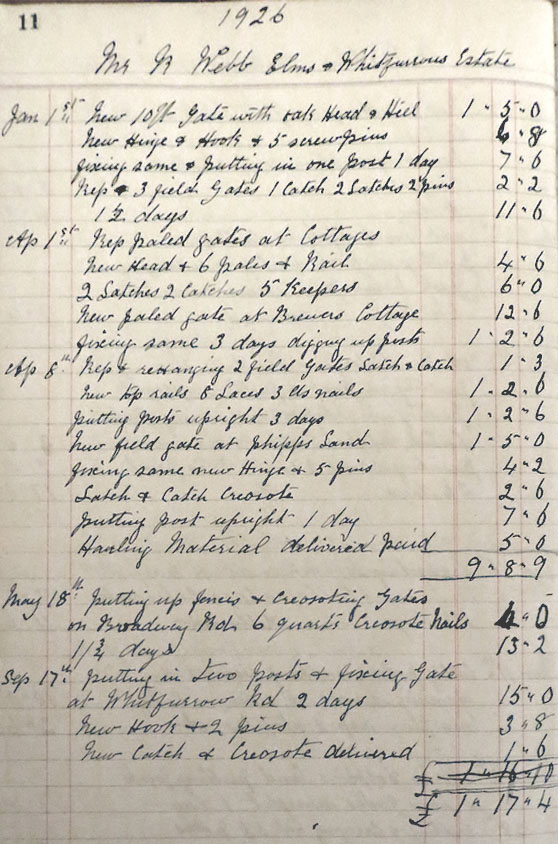 11
1926
Mr R Webb Elms & Whitfurrows Estate
Jan 1st New 10ft Gate with oak Head & Hiel 1 " 5 " 0
New Hinge & Hook & 5 screwpins 6 " 8
fixing same & putting in one post 1 day 7 " 6
Rep & 3 field Gates 1 Catch 2 Latches 2 pins 2 " 2
1 1/2 days 11 " 6
Ap 1st Rep paled gates at Cottages
New Head & 6 pales & Rail 4 " 6
2 Latches 2 Catches 5 Keepers 6 " 0
New paled gate at Brewers Cottage 12 " 6
fixing same 3 days digging up posts 1 " 2 " 6
Ap 8th Rep & rehanging 2 field Gates Latch & Catch 1 " 3
New top rails 8 Laces 3 lbs nails 1 " 2 " 6
putting posts upright 3 days 1 " 2 " 6
New field gate at phipps Land 1 " 5 " 0
fixing same new Hinge & 5 pins 4 " 2
Latch & Catch Creosote 2 " 6
putting post upright 1 day 7 " 6
Hauling Material delivered paid 5 " 0
9 " 8 " 9
May 18th putting up fencis & Creosoting Gates
on Broadway Rd 6 quarts Creosote Nails 4 " 0
1 3/4 days 13 " 2
Sep 17th putting in Two posts & fixing Gate
at Whitfurrow Rd 2 days 15 " 0
New Hook & 2 pins 3 " 8
New Catch & Creosote delivered 1 " 6
£ 1 " 16 " 10
£ 1 " 17 " 4